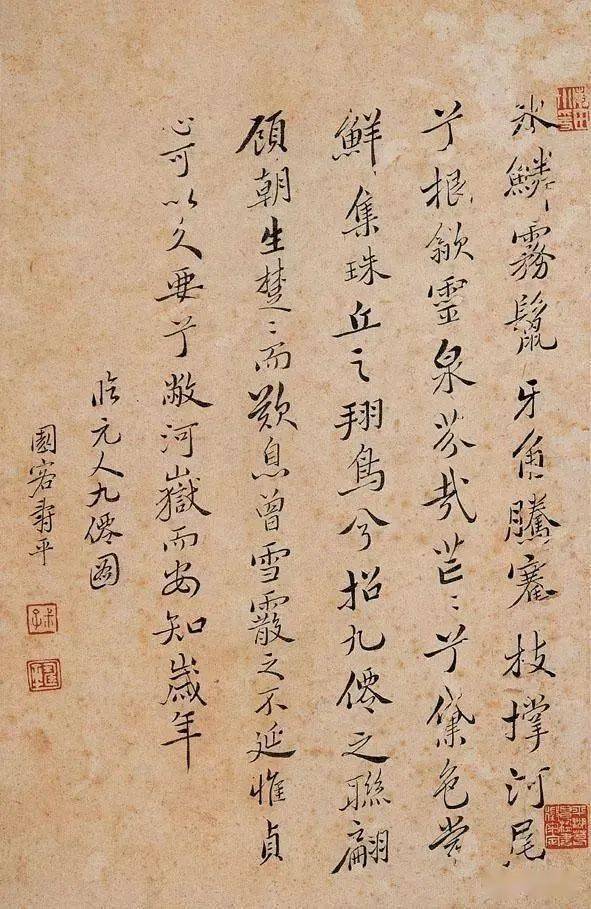 冰鱗霧鬣牙角騰騫枝撐河尾
兮根歙靈泉芬哉芒〻兮黛色嘗
鮮集珠丘之翔鳥兮招九僊之聯翩
顧朝生楚〻而歎息曾雪霰之不延惟貞
心可以久要兮敝河嶽而安知歲年
臨元人九僊圖
園客壽平